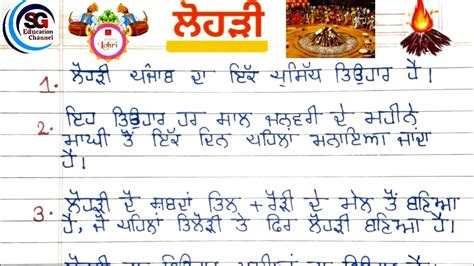 SG
Education
Channel
Lohri
ਲੋਹੜੀ
1. ਲੋਹੜੀ ਪੰਜਾਬ ਦਾ ਇੱਕ ਪ੍ਰਸਿੱਧ ਤਿਉਹਾਰ ਹੈ।
2. ਇਹ ਤਿਉਹਾਰ ਹਰ ਸਾਲ ਜਨਵਰੀ ਦੇ ਮਹੀਨੇ
ਮਾਘੀ ਤੋਂ ਇੱਕ ਦਿਨ ਪਹਿਲਾ ਮਨਾਇਆ ਜਾਂਦਾ
ਹੈ।
3. ਲੋਹੜੀ ਦੋ ਸ਼ਬਦਾਂ ਤਿਲ + ਰੋੜੀ ਦੇ ਮੇਲ ਤੋਂ ਬਣਿਆ
ਹੈ, ਜੋ ਪਹਿਲਾਂ ਤਿਲੋੜੀ ਤੇ ਫਿਰ ਲੋਹੜੀ ਬਣਿਆ ਹੈ।